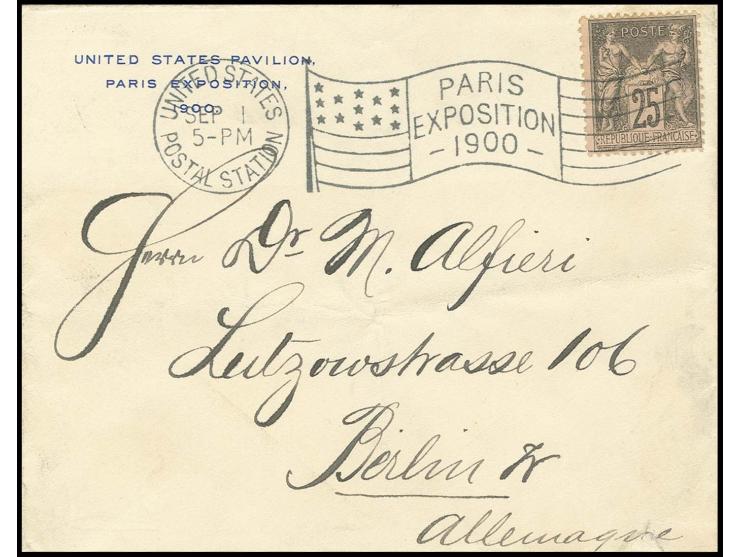 UNITED STATES PAVILION,
PARIS EXPOSITION,
1900.
UNITED STATES
SEP 1
5-PM
POSTAL STATION
PARIS
EXPOSITION
-1900-
POSTE
25
REPUBLIQUE FRANÇAISE
Herrn Dr. M. Alfieri
Lutzowstrasse 106
Berlin W
Allemagne